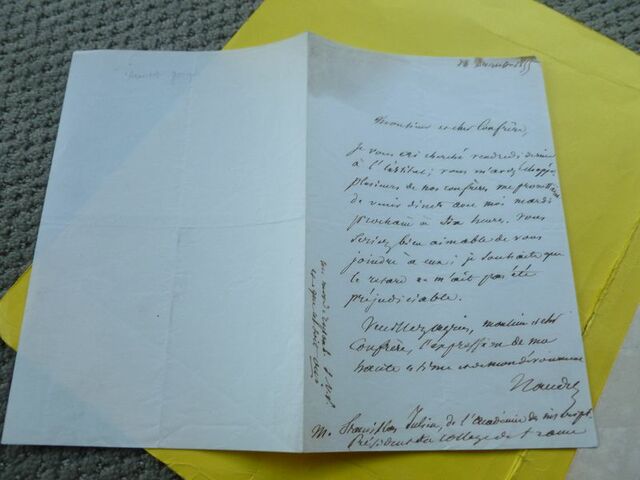 Monsieur et cher Confrère,
je vous ai cherché vendredi dernier
à l'Institut; vous m'avez échappé
plusieurs de nos confrères me promettent
de venir diner avec moi mardi
prochain à six heures. Vous
seriez bien aimable de vous
joindre à eux; je souhaite que
le retard ne m'ait pas été
préjudiciable.
Veuillez agréer, monsieur et cher
Confrère, l'expression de ma
haute estime et de mon dévouement
Naudet
M. Stanislas Julien, de l'académie des inscript.
Président du Collège de France